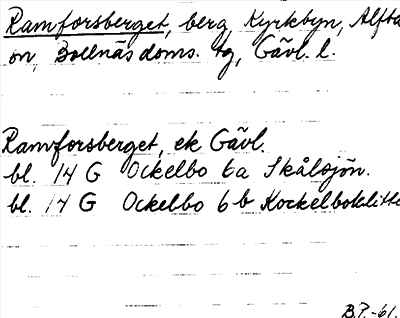 Ramforsberget, berg, Kyrkbyn, Alfta
sn, Bollnäs doms. tg, Gävl. l.
Ramforsberget, ek Gävl.
bl. 14 G Ockelbo 6a Skålsjön.
bl. 14 G Ockelbo 6b Kockelboklitte
B.P.-61.